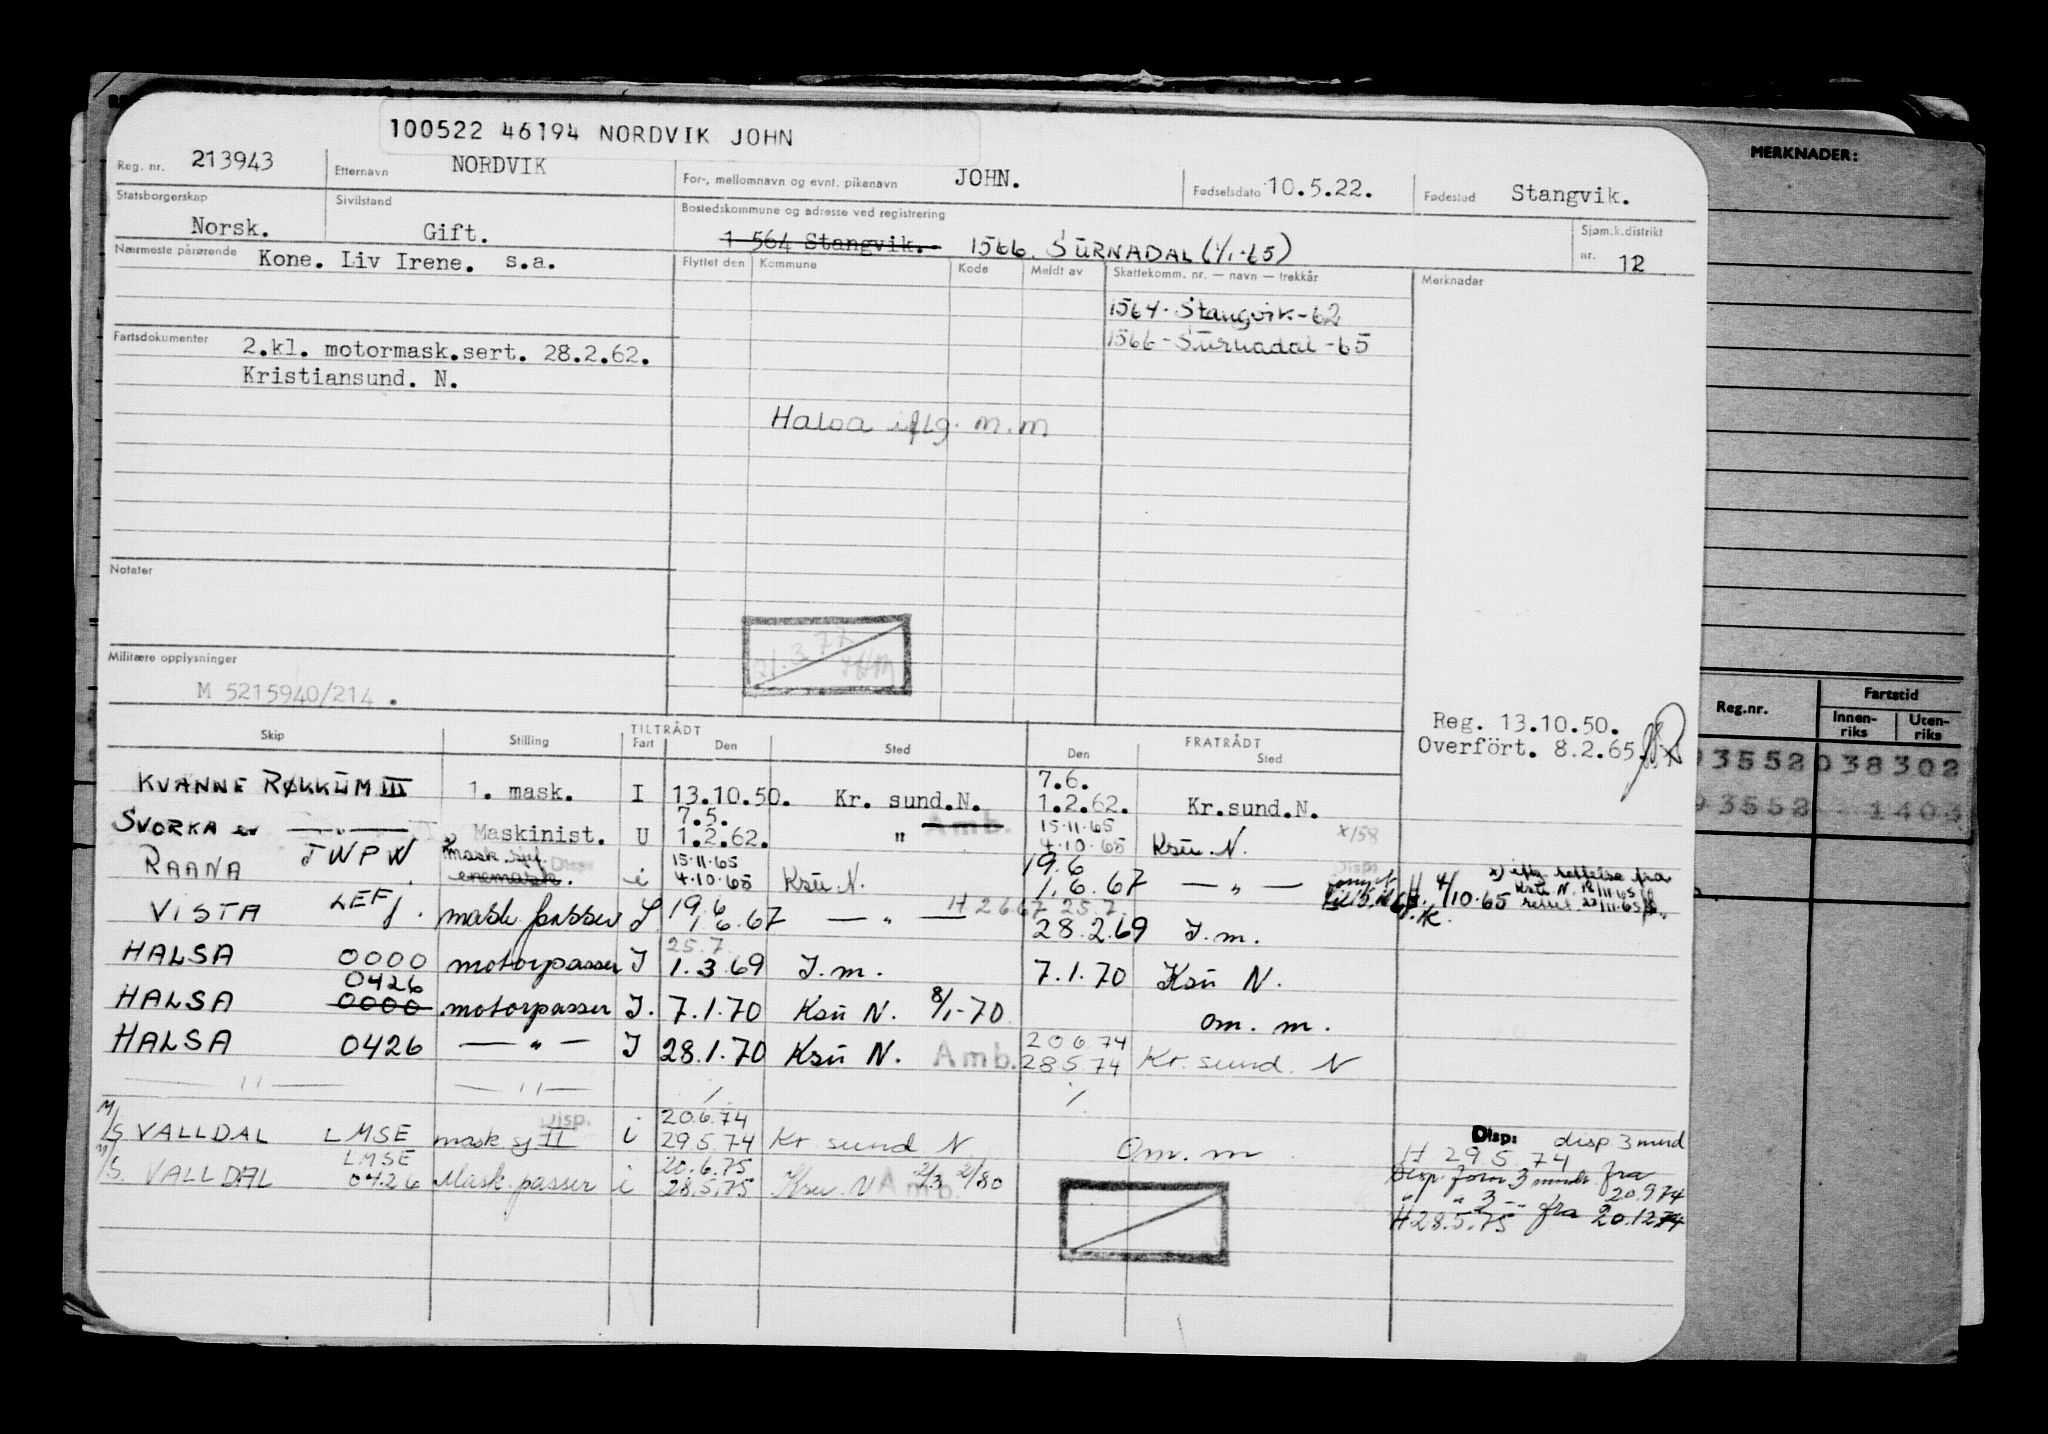 100522 46194 NORDVIK JOHN
Reg. nr. 213943 Etternavn NORDVIK For-, mellomnavn og evnt. pikenavn JOHN. Fødselsdato 10.5.22. Fødested Stangvik.
Statsborgerskap Norsk. Sivilstand Gift. Bostedskommune og adresse ved registrering 1 564 Stangvik. 1566. SURNADAL (1/1-65) Sjøm.k.distrikt nr. 12
Nærmeste pårørende Kone. Liv Irene. s.a.
Flyttet den Kommune Kode Meldt av Skattekomm. nr. — navn — trekkår Merknader
1564. Stangvik-62
1566 - Surnadal -65
Fartsdokumenter 2.kl. motormask.sert. 28.2.62.
Kristiansund. N.
Halsa iflg. m.m
Notater
Militære opplysninger
M 5215940/214 .
Reg. 13.10.50.
Overfört. 8.2.65.
Skip Stilling TILTRÅDT Fart Den Sted FRATRÅDT Den Sted
KVANNE RØKKUM III 1. mask. I 13.10.50. Kr. sund.N. 7.6. 1.2.62. Kr.sund.N.
SVORKA ex — " — Maskinist. U 7.5. 1.2.62. " Amb. 15.11.65 4.10.65 Ksu. N. x/158
RAANA JWPW mask. sjef. enemask. i 15.11.65 4.10.65 Ksu N. 19.6 1.6.67 — " —
H 4/10.65 x) iflg rettelse fra
Ksu N. 18/11.65
VISTA LEFJ. mask passer 19.6 1.6.67 — " — H 2667 25.7. 28.2.69 J.m.
HALSA 0000 motorpasser J 25.7 1.3.69 J.m. 7.1.70 Ksu N.
HALSA 0426 0000 motorpasser J. 7.1.70 Ksu N. 8/1-70 om. m.
HALSA 0426 — " — J 28.1.70 Ksu N. Amb. 20.6.74 28.5.74 Kr. sund. N
— " — — " —
M/S VALLDAL LMSE mask sj II Disp. i 20.6.74 29.5.74 Kr sund N Om. m
Disp: disp 3 mnd
H 29 5 74
M/S. VALLDAL LMSE 0426 Mask. passer i 20.6.75 28.5.75 Ksu. N Amb. 2/3 2/80
Disp. forn 3 mndr. fra 20.9.74
" " 3 - " fra 20.12.74
H 28.5.75
MERKNADER:
Reg.nr. Fartstid
Innen-riks Uten-riks
3552 038302
3552 1403